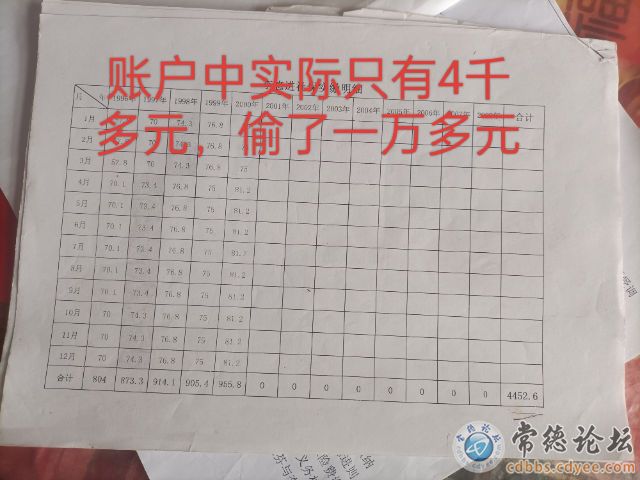 账户中实际只有4千
多元，偷了一万多元
明细
月 年 1996年 1997年 1998年 1999年 2000年 2001年 2002年 2003年 2004年 2005年 2006年 合计
1月 70 74.3 76.8
2月
3月 57.8 70 74.3 76.8 75
4月 70.1 73.4 76.8 75 81.2
5月 70.1 73.4 76.8 75 81.2
6月 70.1 73.4 76.8 75 81.2
7月 70.1 73.4 76.8 75 81.2
8月 70.1 73.4 76.8 75 81.2
9月 70.1 73.4 76.8 75 81.2
10月 70 74.3 76.8 75 81.2
11月 70 74.3 76.8 75 81.2
12月 70 74.3 76.8 75 81.2
合计 804 873.3 914.1 905.4 955.8 0 0 0 0 0 0 0 0 4452.6
常德论坛
cdbbs.cdyee.com